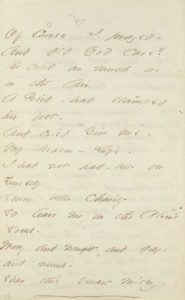 Of Course - I prayed -
And did God Care?
He cared as much as
on the Air
A Bird - had stamped
her foot -
And cried "Give Me" -
My Reason - Life -
I had not had - but for
Yourself -
'Twere better Charity
To leave me in the Atom's
Tomb -
Merry, and nought, and gay,
and numb -
Than this smart misery.